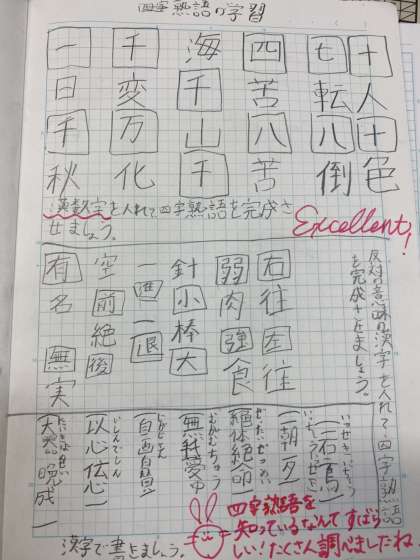 四字熟語の学習
十人十色
七転八倒
四苦八苦
海千山千
千変万化
一日千秋
漢数字を入れて四字熟語を完成さ
せましょう。
Excellent!
反対の意味の漢字を入れて四字熟語
を完成させましょう。
右往左往
弱肉強食
針小棒大
一進一退
空前絶後
有名無実
いっせきにちょう
一石二鳥
いっちょういっせき
一朝一夕
ぜったいぜつめい
絶体絶命
むがむちゅう
無我夢中
じがじさん
自画自賛
いしんでんしん
以心伝心
たいきばんせい
大器晩成
漢字で書きましょう。
四字熟語を
知っているなんてすばら
しい!たくさん調べましたね